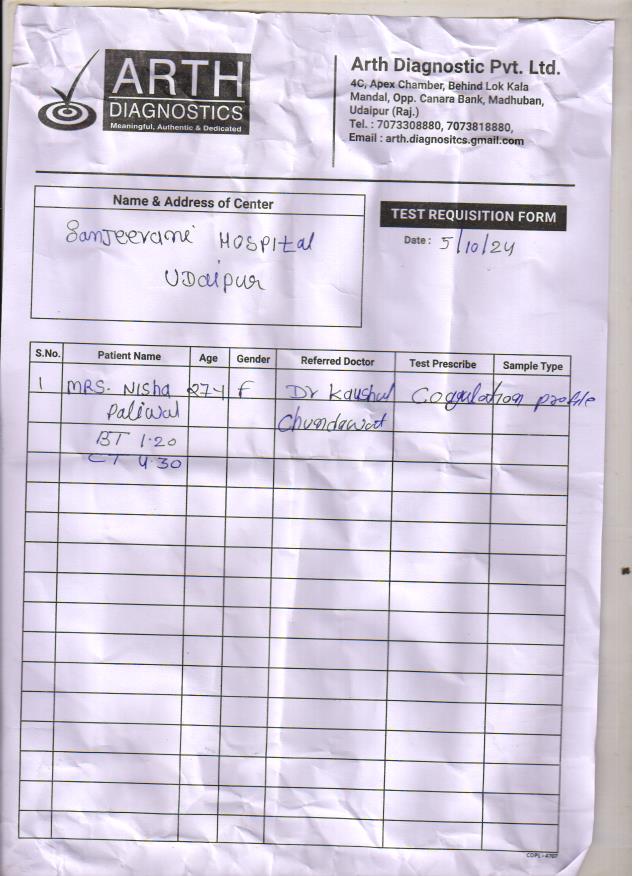 ARTH
DIAGNOSTICS
Meaningful, Authentic & Dedicated
Arth Diagnostic Pvt. Ltd.
4C, Apex Chamber, Behind Lok Kala
Mandal, Opp. Canara Bank, Madhuban,
Udaipur (Raj.)
Tel. : 7073308880, 7073818880,
Email : arth.diagnositcs.gmail.com
Name & Address of Center
Sanjeevani Hospital
Udaipur
TEST REQUISITION FORM
Date : 5/10/24
S.No. Patient Name Age Gender Referred Doctor Test Prescribe Sample Type
1 MRS. Nisha 27Y F Dr Kaushal Cogulation profile
Paliwal Chundawat
BT 1.20
CT 4.30
CDPL-4707